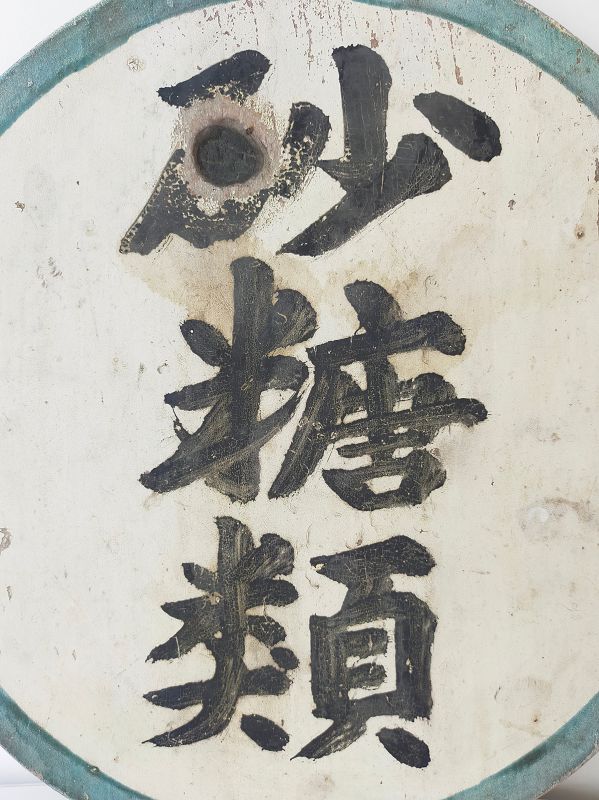 砂糖類